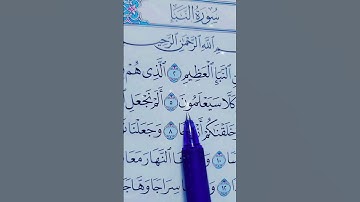 سُورَةُ النَّبَإِ
ـمِ اللَّهِ الرَّحْمَٰنِ الرَّحِيمِ
النَّبَإِ الْعَظِيمِ ٢ الَّذِي هُمْ
كَلَّا سَيَعْلَمُونَ ٥ أَلَمْ نَجْعَلِ
خَلَقْنَاكُمْ أَزْوَاجًا ٨ وَجَعَلْنَا
١٠ وَجَعَلْنَا النَّهَارَ مَعَا
سِرَاجًا وَهَّاجًا